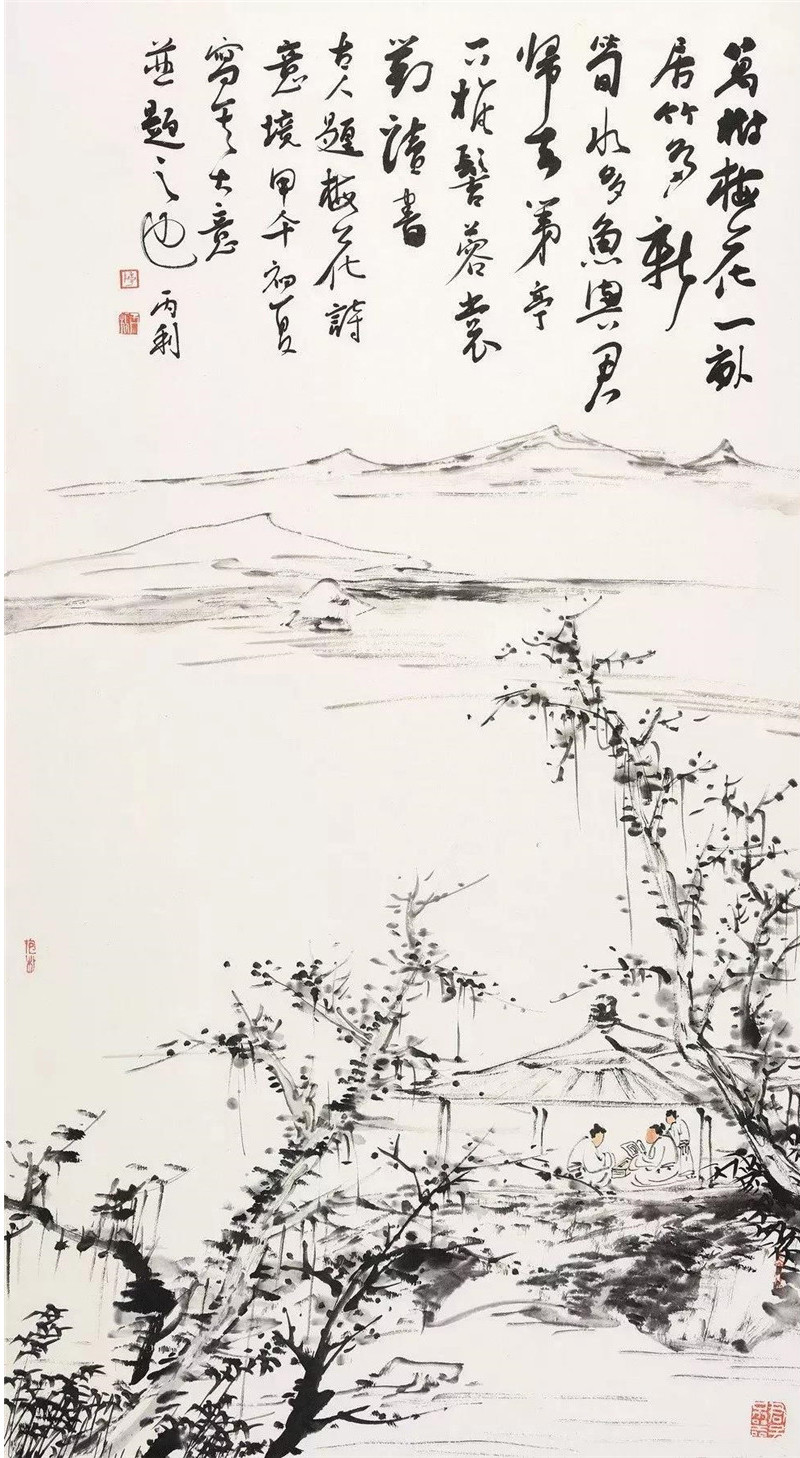 萬樹梅花一畝
居竹多新
筍水多魚與君
歸去茅亭
下椎髻蓉裳
對讀書
古人題梅花詩
意境甲午初夏
寫其大意
並題之也
丙利